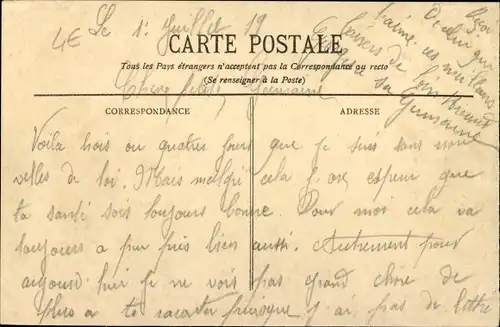 4E Le 1 Juillet 19
CARTE POSTALE
Tous les Pays étrangers n'acceptent pas la Correspondance au recto
(Se renseigner à la Poste)
Chère petite Germaine
CORRESPONDANCE
ADRESSE
Voila trois ou quatre jours que je suis sans nou
velles de toi. Mais malgré cela j'ose esperer que
ta santé sois toujours bonne Pour moi cela va
toujours a peu près bien aussi. Autrement pour
aujourd'hui je ne vois pas grand chose de
plus a te raconter puisque j'ai pas de lettre
qui
t'aime ses meilleurs
baisers de
sa Germaine